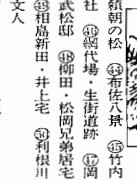 頼朝の松 ㊹布佐八景 ㊺竹内
社 ㊻網代場・生街道跡 ㊼岡
武松邸 ㊽柳田・松岡兄弟居宅
㊾相島新田・井上宅 ㊿利根川
文人